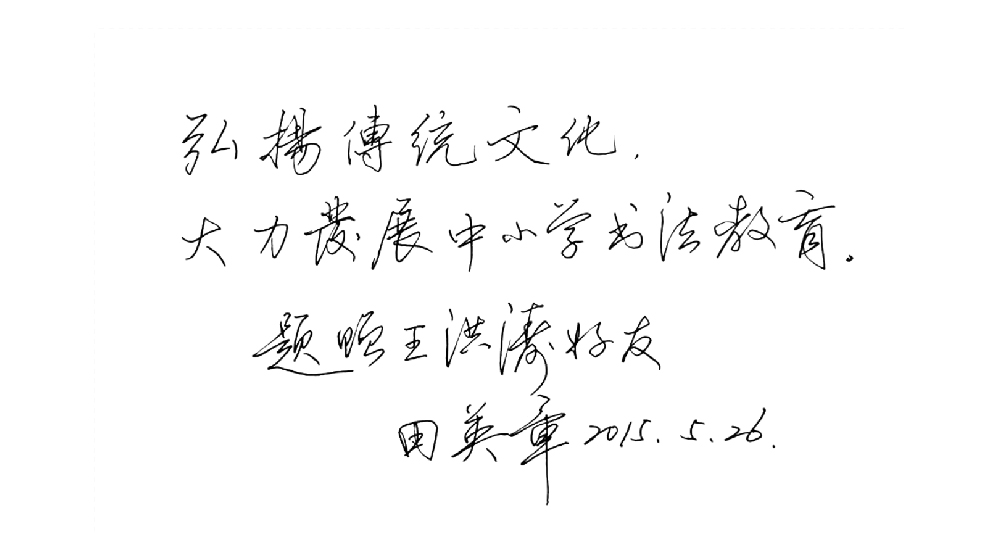 弘揚傳统文化.
大力發展中小学书法教育.
题赠王洪涛好友
田英章2015.5.26.